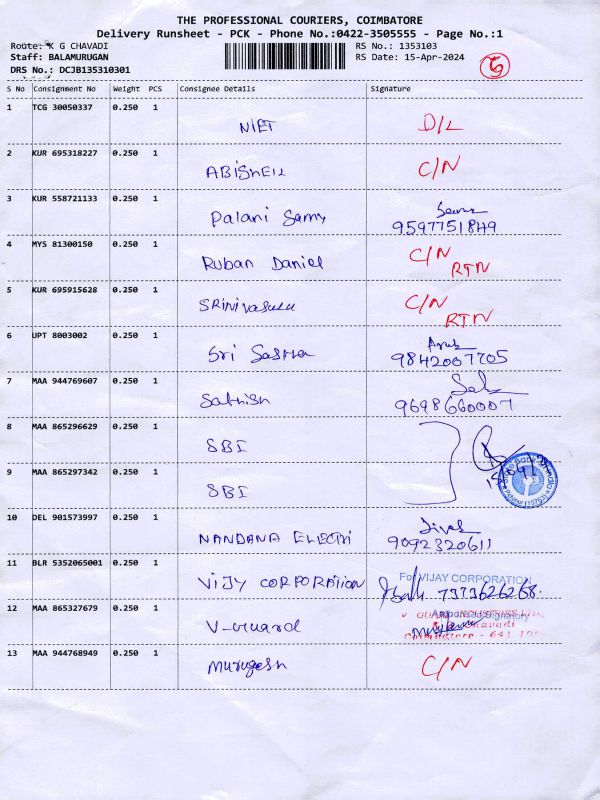 THE PROFESSIONAL COURIERS, COIMBATORE
Delivery Runsheet - PCK - Phone No.:0422-3505555 - Page No.:1
Route: K G CHAVADI RS No.: 1353103
Staff: BALAMURUGAN RS Date: 15-Apr-2024
DRS No.: DCJB135310301
S No Consignment No Weight PCS Consignee Details Signature
1 TCG 30050337 0.250 1
NIET D/L
2 KUR 695318227 0.250 1
ABISHEK C/N
3 KUR 558721133 0.250 1
Palani Samy 9597751849
4 MYS 81300150 0.250 1
Ruban Daniel C/N
RTN
5 KUR 695915628 0.250 1
SRINIVASULU C/N
RTN
6 UPT 8003002 0.250 1
Sri Sastha 9842007705
7 MAA 944769607 0.250 1
Sathish 9698660007
8 MAA 865296629 0.250 1
SBI
9 MAA 865297342 0.250 1
SBI
10 DEL 901573997 0.250 1
NANDANA ELECTRI 9092320611
11 BLR 5352065001 0.250 1
For VIJAY CORPORATION
VIJY CORPORATION 7373626268
12 MAA 865327679 0.250 1
Authorised Signatory
V-Guard
13 MAA 944768949 0.250 1
Murugesh C/N